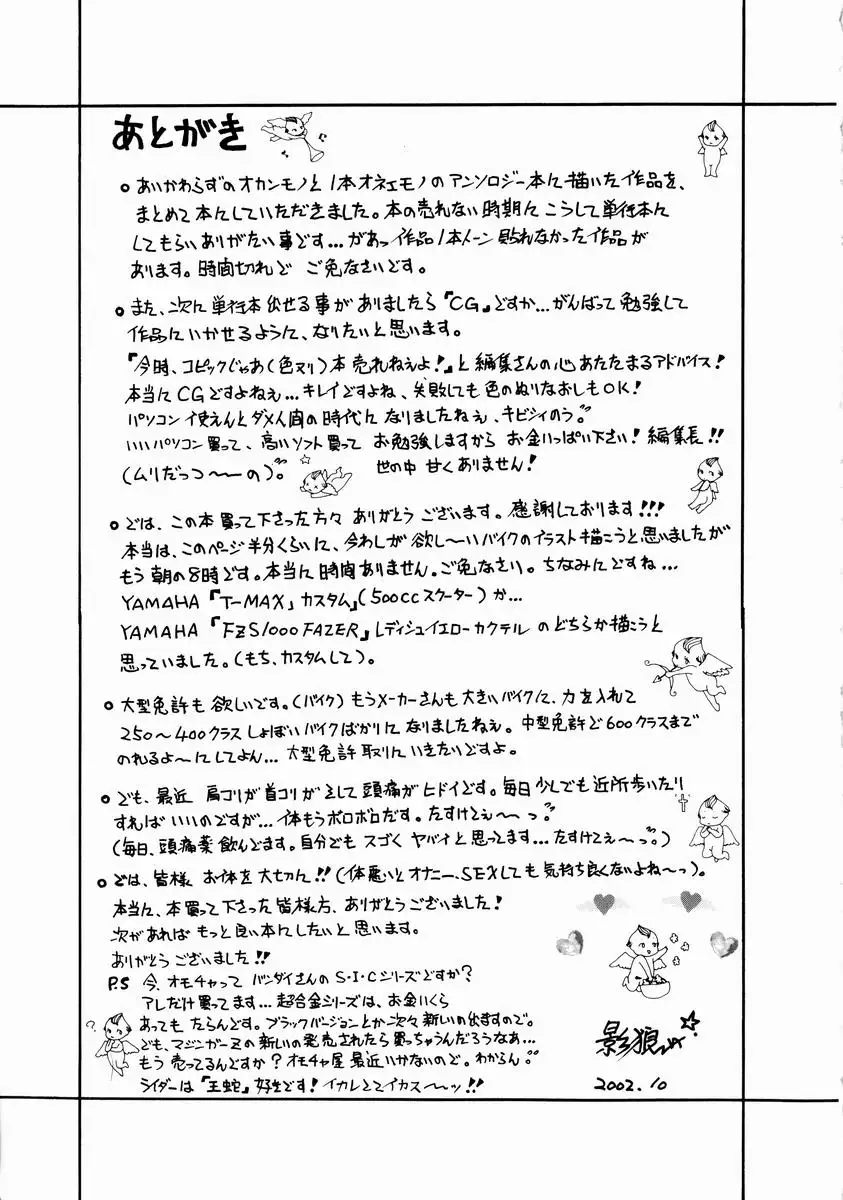 あとがき
○あいかわらずのオカンモノと1本オネエモノのアンソロジー本に描いた作品を、
まとめて本にしていただきました。本の売れない時期にこうして単行本に
してもらいありがたい事です…があっ作品1本トーン貼れなかった作品が
あります。時間切れで ご免なさいです。
○また、次に単行本出せる事がありましたら『CG』ですか…がんばって勉強して
作品にいかせるように、なりたいと思います。
『今時、コピックじゃあ(色ヌリ)本売れねえよ!』と編集さんの心あたたまるアドバイス!
本当にCGですよねぇ…キレイですよね、失敗しても色のぬりなおしもOK!
パソコン使えんとダメ人間の時代になりましたねぇ、キビシイのう。
いいパソコン買って、高いソフト買って お勉強しますから お金いっぱい下さい!編集長!!
(ムリだっつ〜〜の)。 世の中 甘くありません!
○では、この本買って下さった方々 ありがとうございます。感謝しております!!!
本当は、このページ半分くらいに、今わしが欲し〜いバイクのイラスト描こうと思いましたが
もう朝の8時です。本当に時間ありません。ご免なさい。ちなみにですね…
YAMAHA『T-MAX』カスタム(500ccスクーター)か…
YAMAHA『FZS1000FAZER』レディシュイエローカクテルのどちらか描こうと
思っていました。(もち、カスタムして)。
○大型免許も欲しいです。(バイク)もうメーカーさんも大きいバイクに、力を入れて
250〜400クラスしょぼいバイクばかりになりましたねぇ。中型免許で600クラスまで
のれるよ〜にしてよん…大型免許取りにいきたいですよ。
○でも、最近 肩コリが首コリがそして頭痛がヒドイです。毎日少しでも近所歩いたり
すればいいのですが…体もうボロボロだす。たすけてぇ〜〜っ。
(毎日、頭痛薬飲んでます。自分でもスゴくヤバイと思ってます…たすけてぇ〜っ。)
○では、皆様 お体を大切に!!(体悪いとオナニー、SEXしても気持ち良くないよね〜っ)。
本当に、本買って下さった皆様方、ありがとうございました!
次があればもっと良い本にしたいと思います。
ありがとうございました!!
P.S 今、オモチャってバンダイさんのS・I・Cシリーズですか?
アレだけ買ってます…超合金シリーズは、お金いくら
あってもたらんです。ブラックバージョンとか次々新しいの出ますので。
でも、マジンガーZの新しいの発売されたら買っちゃうんだろうなあ…
もう売ってるんですか?オモチャ屋最近いかないので。わからん。
ライダーは『王蛇』好きです!イカレててイカス〜〜ッ!!
?
影狼
2002.10